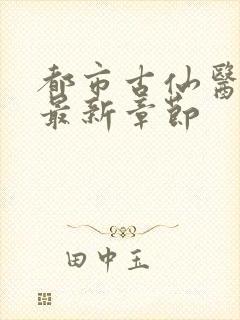 都市古仙醫
最新章節
田中玉